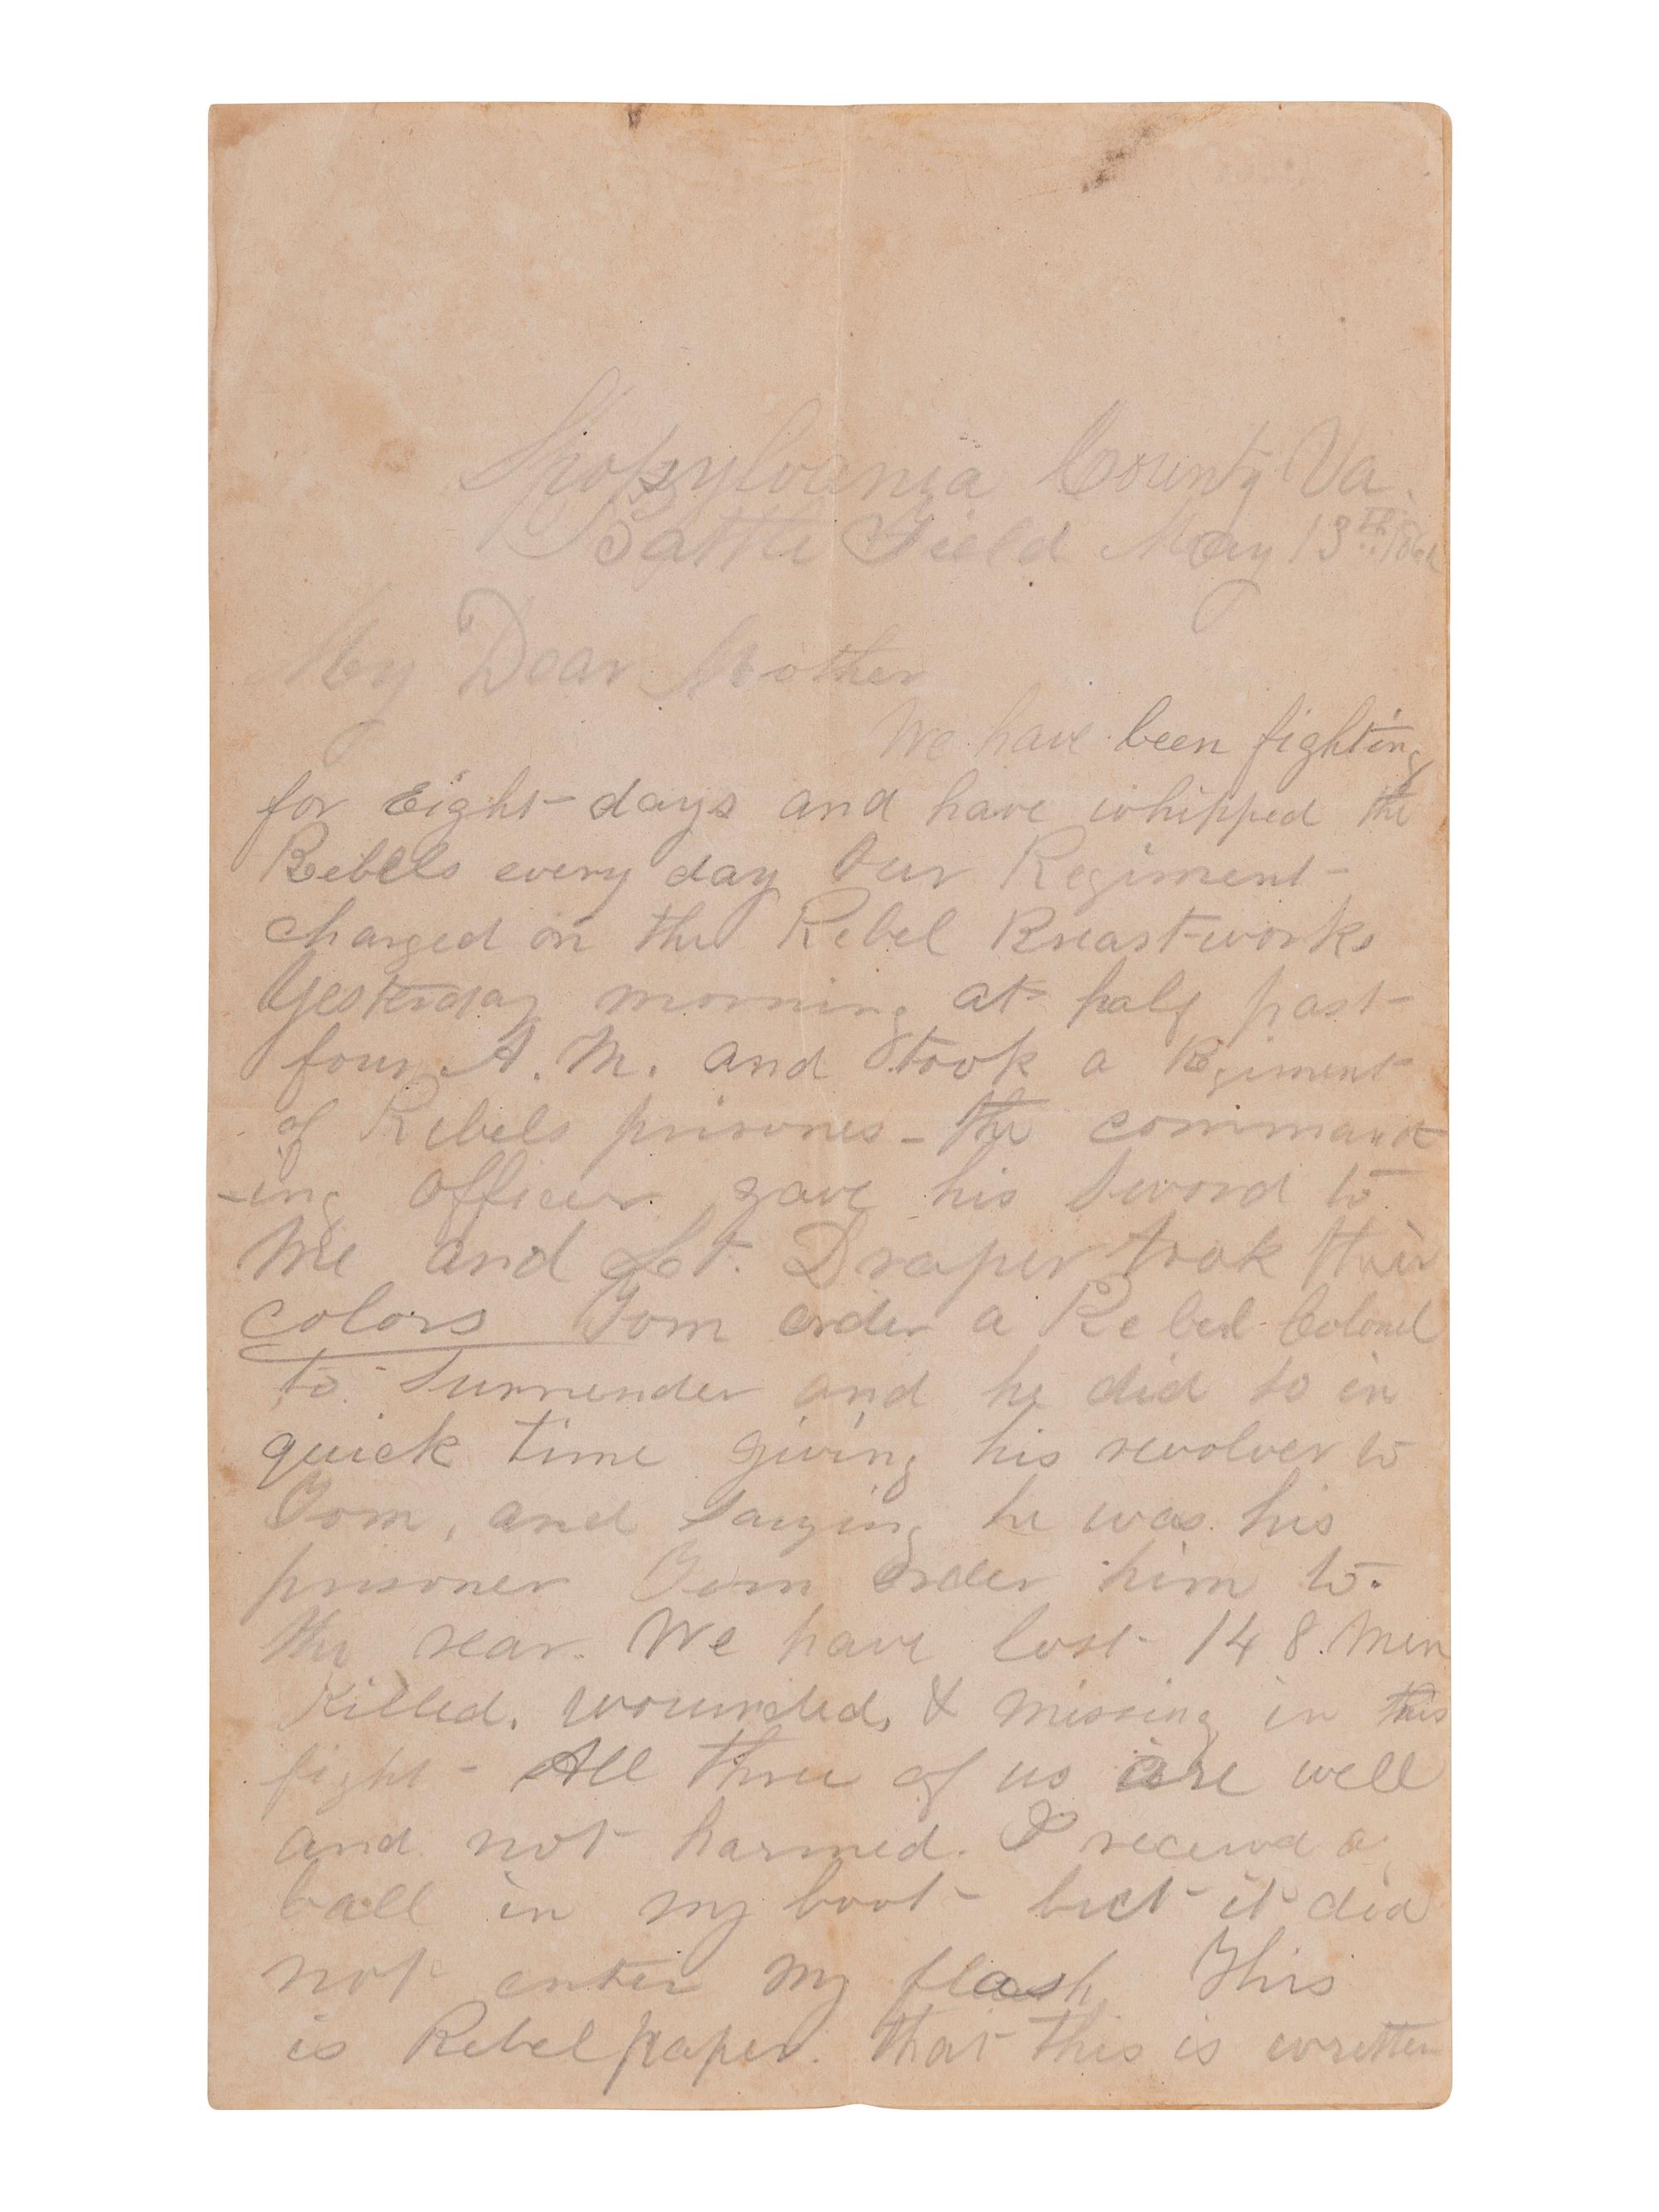 Spotsylvania County Va.
Battle Field May 13th 1864
My Dear Mother
We have been fighting
for Eight days and have whipped the
Rebels every day Our Regiment
charged on the Rebel Breastworks
Yesterday morning at half past
four A. M. and took a Regiment
of Rebels prisones - the command
-ing officer gave his Sword to
me and Lt. Draper took their
colors Tom order a Rebel Colonel
to Surrender and he did so in
quick time giving his revolver to
Tom, and saying he was his
prisoner Tom order him to
the rear. We have lost 148 men
Killed, wounded, & missing in this
fight - All three of us are well
and not harmed. I receved a
ball in my boot - but it did
not enter my flash This
is Rebel paper. that this is written